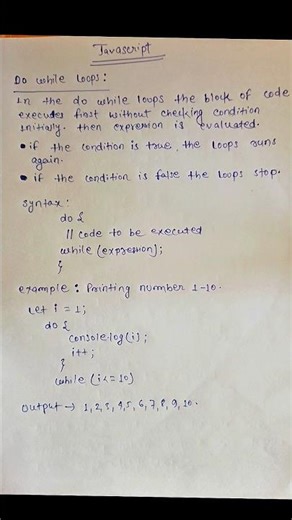 Javascript
Do while loops:
In the do while loops the block of code
executes first without checking condition
initially. then expression is evaluated.
• if the condition is true, the loops runs
again.
• if the condition is false the loops stop.
syntax:
do {
// code to be executed
while (expression);
}
example: Printing number 1-10.
let i = 1;
do {
console.log(i);
i++;
}
while (i<=10)
output → 1, 2, 3, 4, 5, 6, 7, 8, 9, 10.